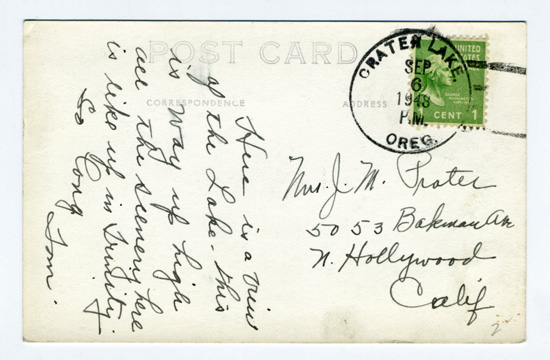 POST CARD
CORRESPONDENCE
ADDRESS
CRATER LAKE
SEP
6
1948
P.M.
OREG.
UNITED
STATES
CENT 1
Here is a view
of the Lake. this
is way up high
all the scenery here
is like up in Trinity.
So Long
Tom.
Mrs. J. M. Prater
5053 Bakman Ave
N. Hollywood
Calif
2